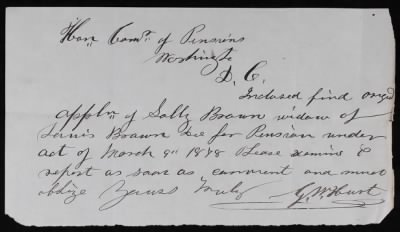 Hon Comr of Pensions
Washingto
D. C.
Inclosed find orig
appln of Sally Brown widow of
Lewis Brown Dec for Pension under
act of March 9" 1878 Please examine &
report as soon as convenient and must
oblige Yours Truly G. W. Hurt